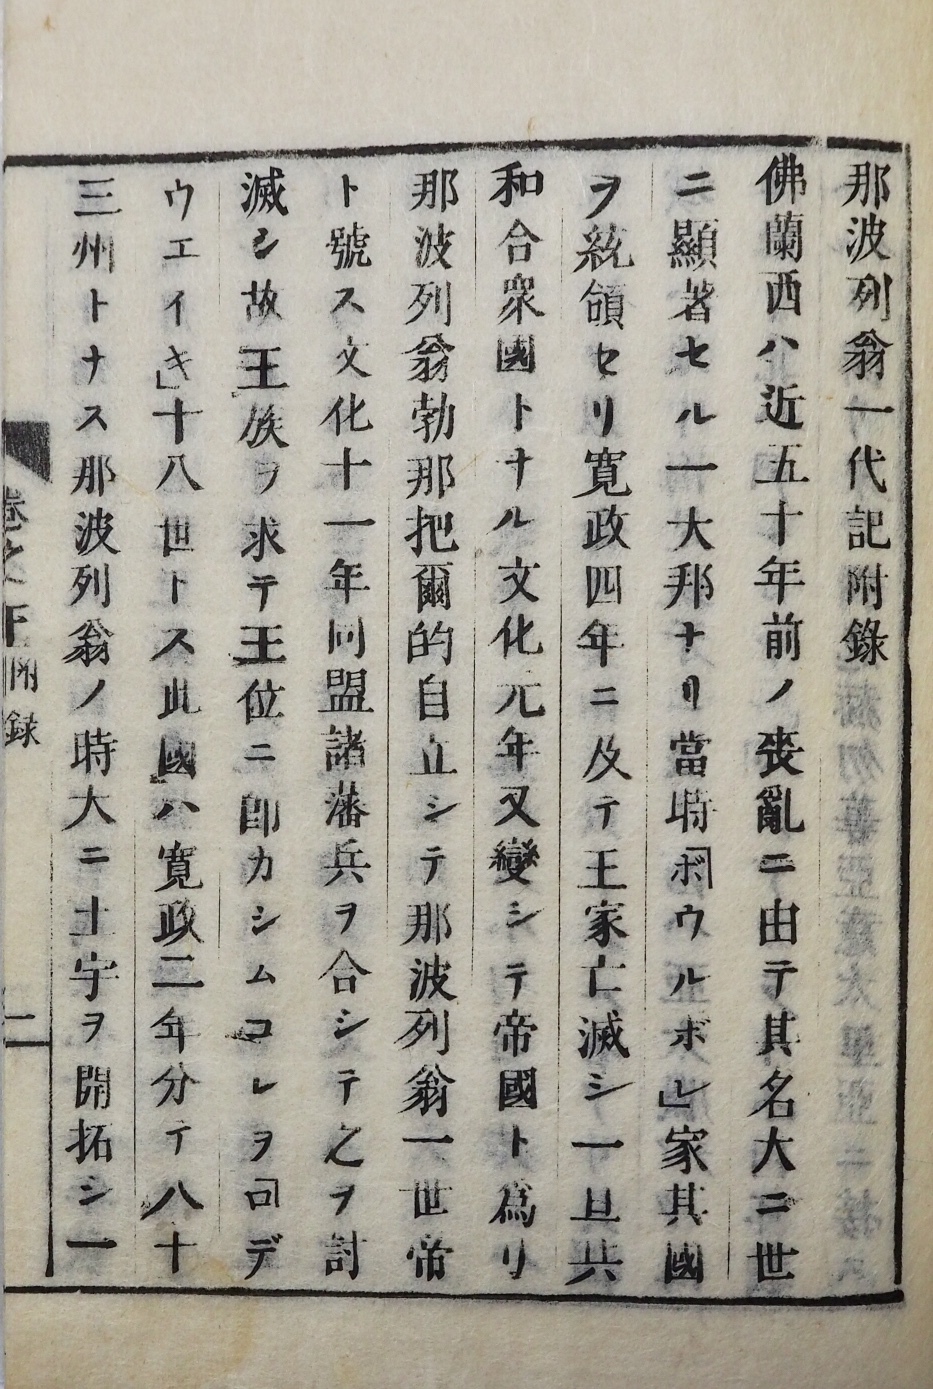 那波列翁一代記附錄
佛蘭西ハ近五十年前ノ喪亂ニ由テ其名大ニ世
ニ顯著セル一大邦ナリ當時「ボウルボレ」家其國
ヲ統領セリ寬政四年ニ及テ王家亡滅シ一旦共
和合衆國トナル文化元年又變シテ帝國ト爲リ
那波列翁勃那把爾的自立シテ那波列翁一世帝
ト號ス文化十一年同盟諸藩兵ヲ合シテ之ヲ討
滅シ故王族ヲ求テ王位ニ卽カシムコレヲ「ロデ
ウエイキ」十八世トス此國ハ寬政二年分テ八十
三州トナス那波列翁ノ時大ニ土宇ヲ開拓シ一
卷之下附録 二